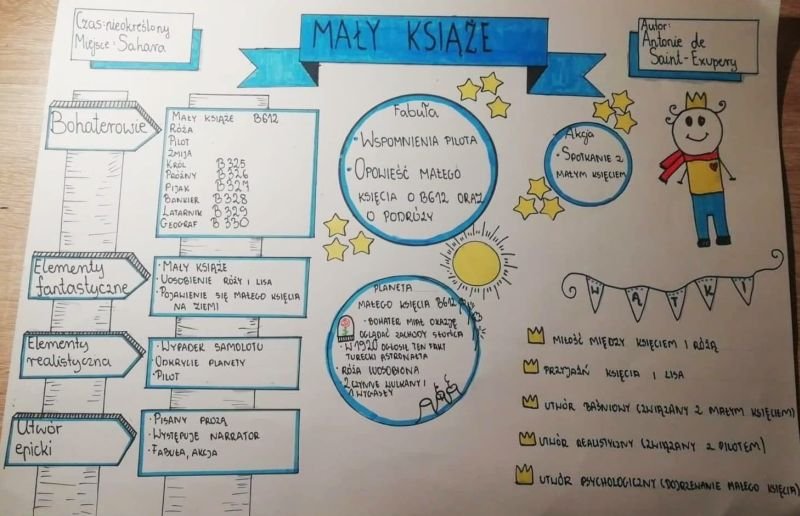 Czas: nieokreślony
Miejsce: Sahara
MAŁY KSIĄŻE
Autor:
Antonie de
Saint-Exupery
Bohaterowie
MAŁY KSIĄŻE B612
RÓŻA
PILOT
ŻMIJA
KRÓL B325
PRÓŻNY B326
PIJAK B327
BANKIER B328
LATARNIK B329
GEOGRAF B330
Elementy
fantastyczne
• MAŁY KSIĄŻE
• UOSOBIENIE RÓŻY I LISA
• POJAWIENIE SIĘ MAŁEGO KSIĘCIA
NA ZIEMI
Elementy
realistyczna
• WYPADEK SAMOLOTU
• ODKRYCIE PLANETY
• PILOT
Utwór
epicki
• PISANY PROZĄ
• WYSTĘPUJE NARRATOR
• FABUŁA, AKCJA
Fabuła
• WSPOMNIENIA PILOTA
• OPOWIEŚĆ MAŁEGO
KSIĘCIA O B612 ORAZ
O PODRÓŻY
Akcja
• SPOTKANIE Z
MAŁYM KSIĘCIEM
PLANETA
MAŁEGO KSIĘCIA B612
• BOHATER MIAŁ OKAZJĘ
OGLĄDAĆ ZACHODY SŁOŃCA
• W 1920 OGŁOSIŁ TEN FAKT
TURECKI ASTRONAUTA
• RÓŻA UOSOBIONA
• 2 CZYNNE WULKANY I
1 WYGASŁY
WĄTKI
MIŁOŚĆ MIĘDZY KSIĘCIEM I RÓŻĄ
PRZYJAŹŃ KSIĘCIA I LISA
UTWÓR BAŚNIOWY (ZWIĄZANY Z MAŁYM KSIĘCIEM)
UTWÓR REALISTYCZNY (ZWIĄZANY Z PILOTEM)
UTWÓR PSYCHOLOGICZNY (DOJRZEWANIE MAŁEGO KSIĘCIA)